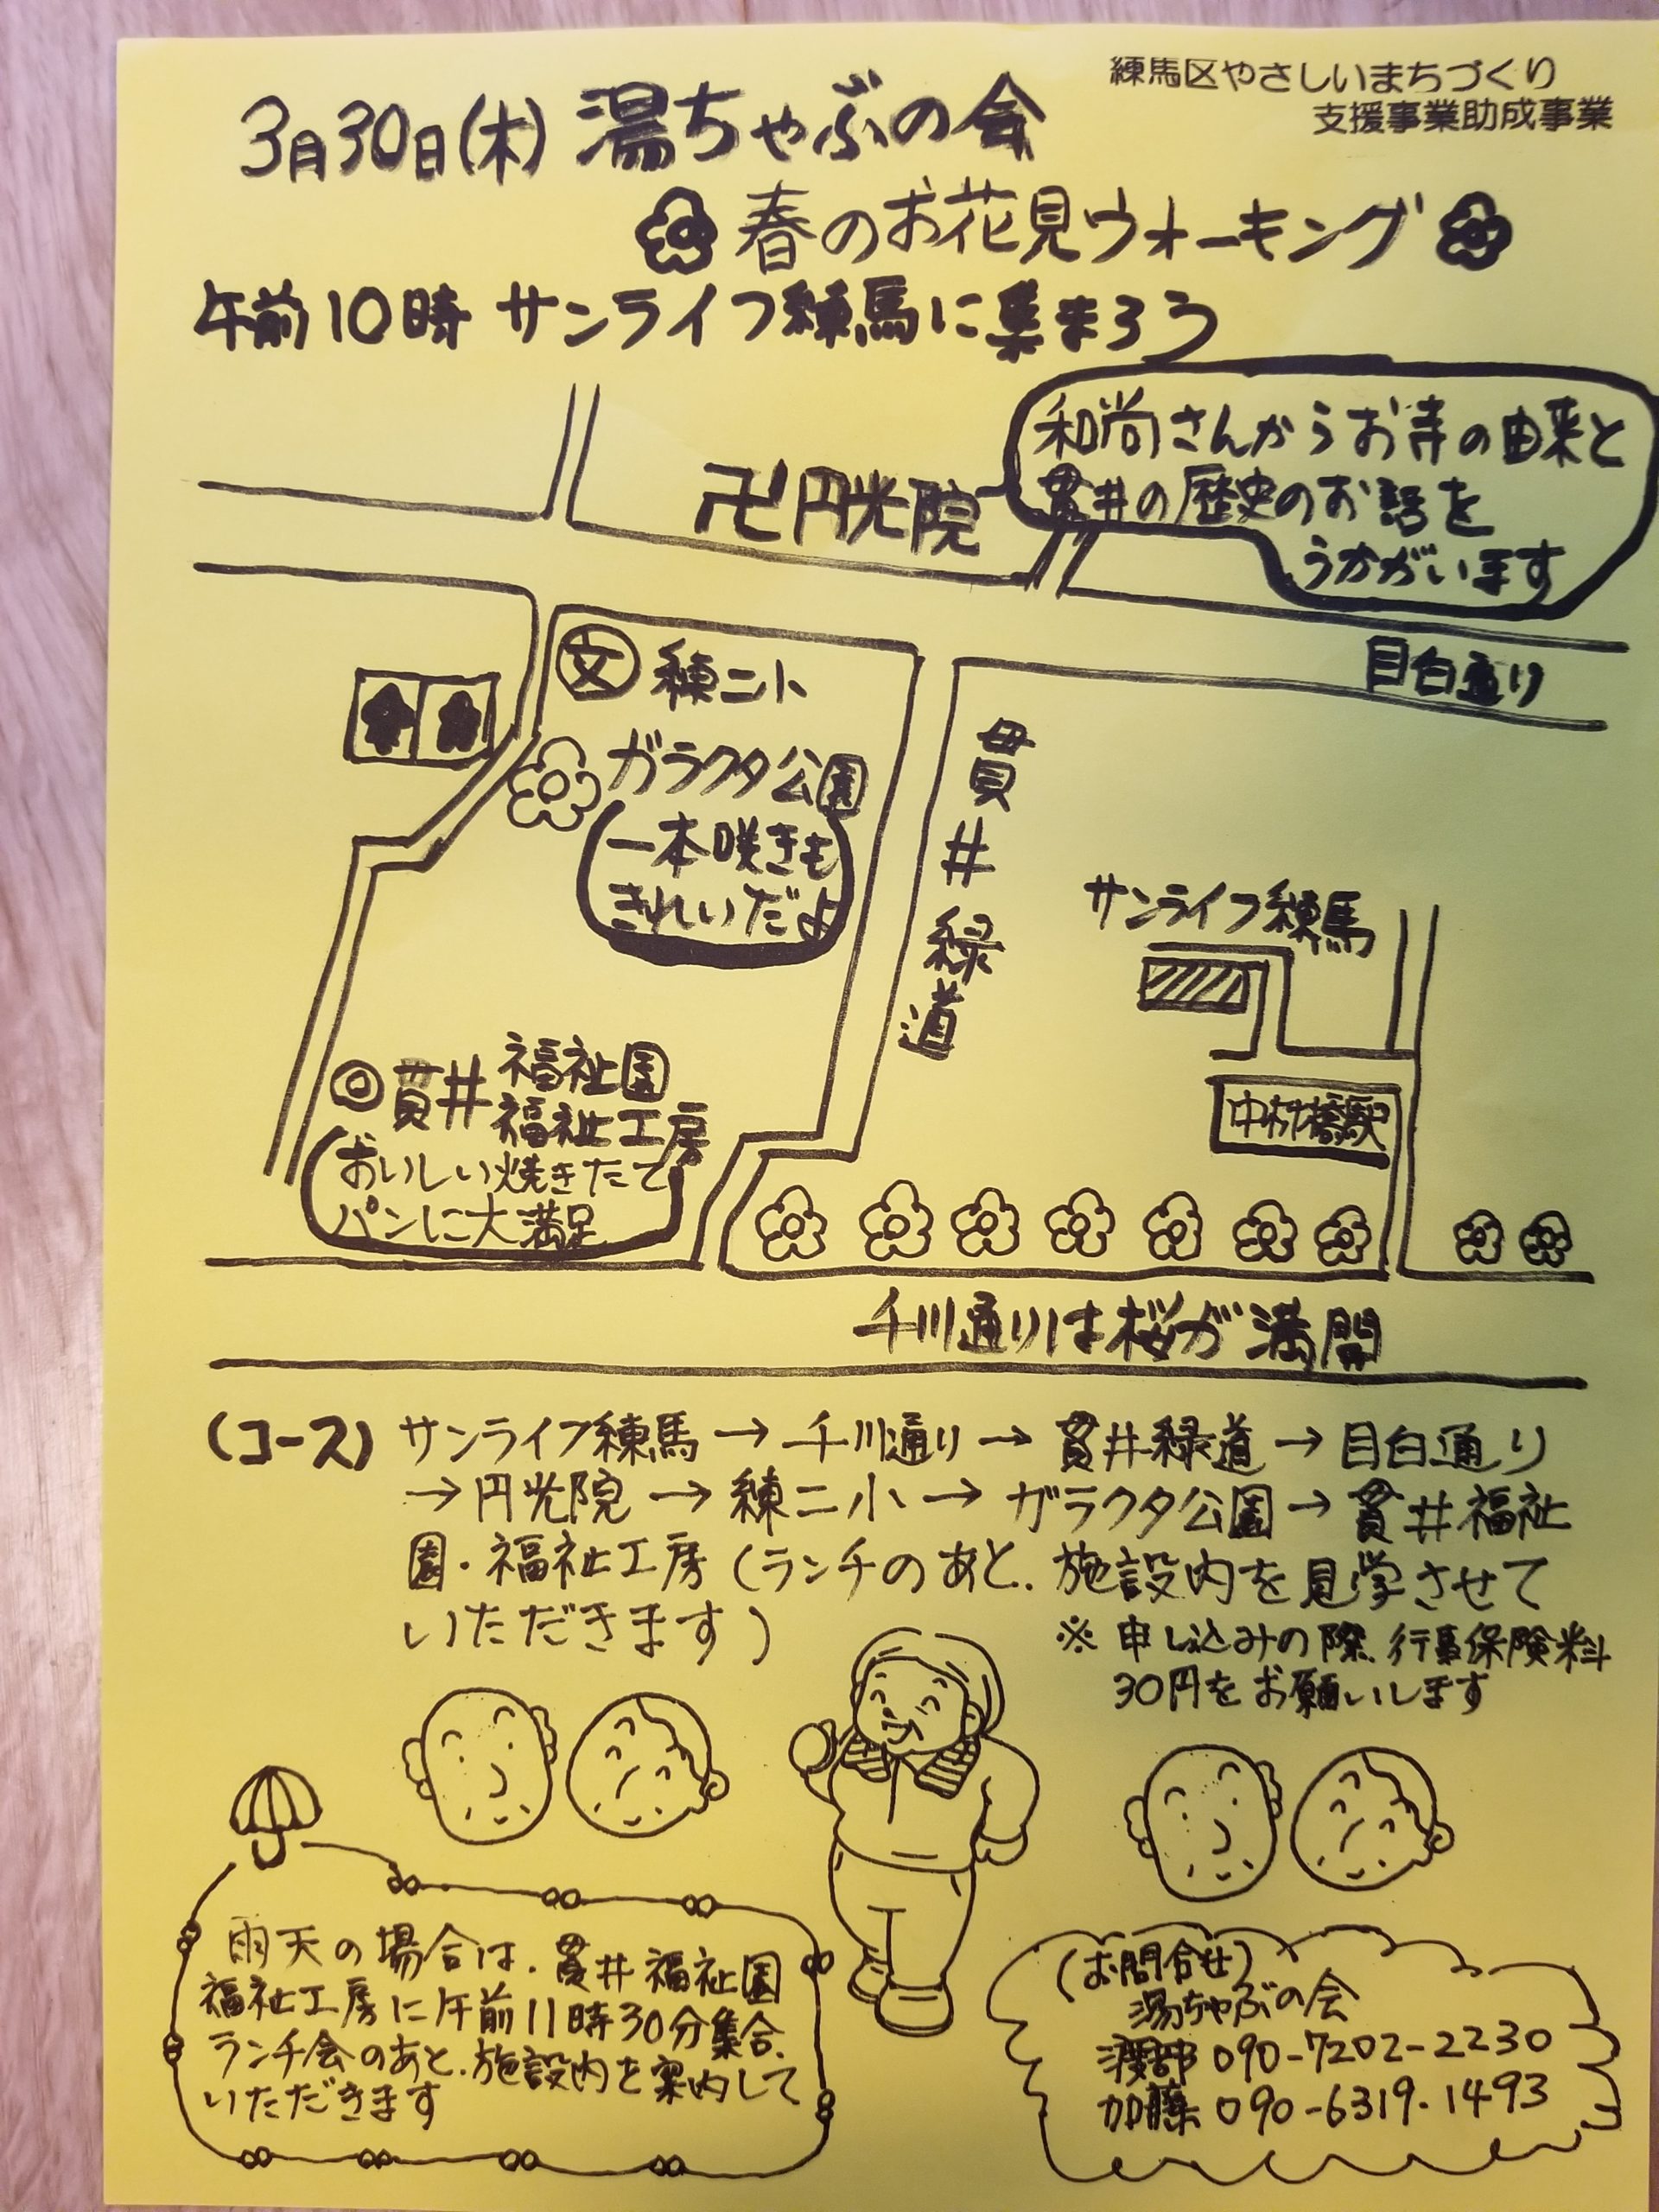 練馬区やさしいまちづくり
支援事業助成事業
3月30日(木) 湯ちゃぶの会
春のお花見ウォーキング
午前10時 サンライフ練馬に集まろう
和尚さんからお寺の由来と
貫井の歴史のお話を
うかがいます
卍円光院
目白通り
文 練二小
ガラクタ公園
一本咲きも
きれいだよ
貫井緑道
サンライフ練馬
中村橋駅
◎貫井 福祉園
福祉工房
おいしい焼きたて
パンに大満足
千川通りは桜が満開
(コース) サンライフ練馬→千川通り→貫井緑道→目白通り
→円光院→練二小→ガラクタ公園→貫井福祉
園・福祉工房(ランチのあと、施設内を見学させて
いただきます)
※申し込みの際、行事保険料
30円をお願いします
雨天の場合は、貫井福祉園
福祉工房に午前11時30分集合、
ランチ会のあと、施設内を案内して
いただきます
(お問合せ)
湯ちゃぶの会
渡部 090-7202-2230
加藤 090-6319-1493